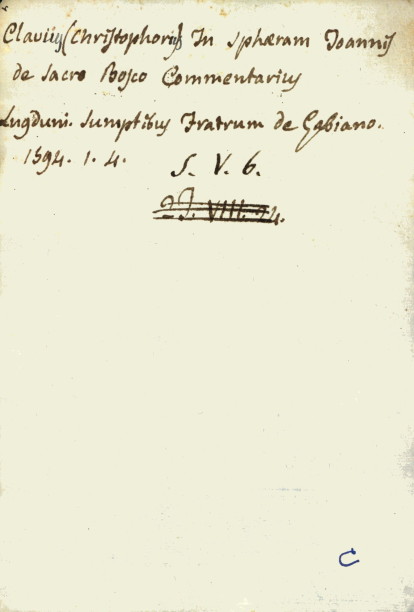 Clavius (Christophorus) In Sphæram Joannis
de Sacro Bosco Commentarius
Lugduni. Sumptibus Fratrum de Gabiano.
1594. 1. 4.
S. V. 6.
VIII. 24.
C